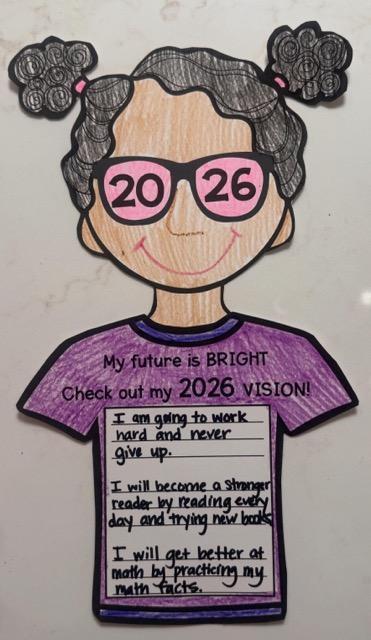 20 26
My future is BRIGHT
Check out my 2026 VISION!
I am going to work
hard and never
give up.
I will become a stronger
reader by reading every
day and trying new books
I will get better at
math by practicing my
math facts.